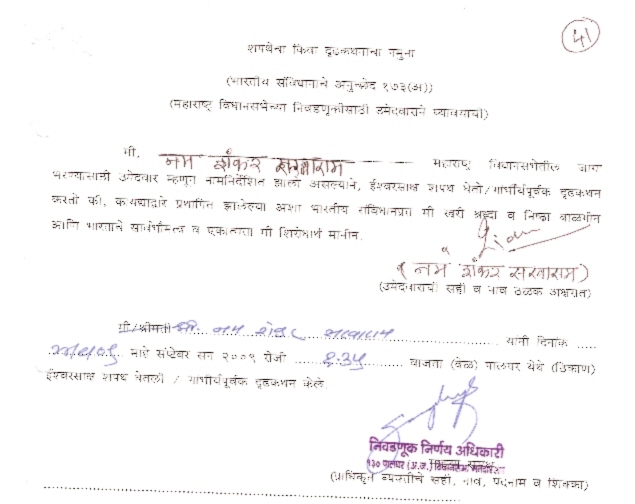 41
शपथेचा किंवा दृढकथनाचा नमुना
(भारतीय संविधानाचे अनुच्छेद १७३(अ))
(महाराष्ट्र विधानसभेच्या निवडणूकीसाठी उमेदवाराने घ्यावयाची)
मी, नम शंकर सखाराम महाराष्ट्र विधानसभेतील जागा
भरण्यासाठी उमेदवार म्हणून नामनिर्देशित झालो असल्याने, ईश्वरसाक्ष शपथ घेतो/गांभीर्यपूर्वक दृढकथन
करतो की, कायद्याद्वारे प्रस्थापित झालेल्या अशा भारतीय संविधानाप्रत मी खरी श्रद्धा व निष्ठा बाळगीन
आणि भारताचे सार्वभौमत्व व एकात्मता मी शिरोधार्य मानीन.
(नम शंकर सखाराम)
(उमेदवाराची सही व नाव ठळक अक्षरात)
मी/श्रीमती श्री. नम शंकर सखाराम यांनी दिनांक .....
माहे सप्टेंबर सन २००९ रोजी ........ २.३५ ........ वाजता (वेळ) पालघर येथे (ठिकाण)
ईश्वरसाक्ष शपथ घेतली / गांभीर्यपूर्वक दृढकथन केले.
निवडणूक निर्णय अधिकारी
१३० पालघर (अ.ज.)
(प्राधिकृत व्यक्तीचे सही, नाव, पदनाम व शिक्का)